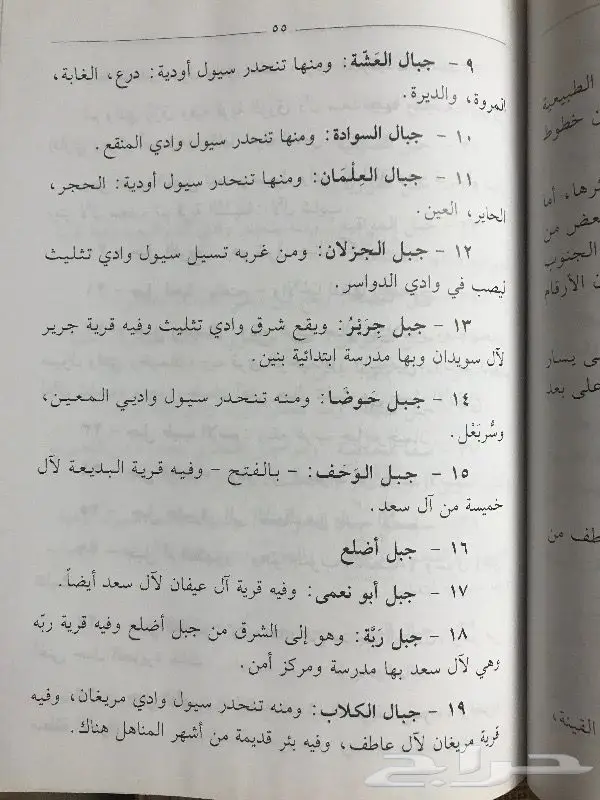 ٥٥
٩ - جبال العَشّة: ومنها تنحدر سيول أودية: درع، الغابة،
المروة، والديرة.
١٠ - جبال السوادة: ومنها تنحدر سيول وادي المنقع.
١١ - جبال العِلْمَان: ومنها تنحدر سيول أودية: الحجر،
الحاير، العين.
١٢ - جبل الجزلان: ومن غربه تسيل سيول وادي تثليث
ليصب في وادي الدواسر.
١٣ - جبل جِرَيْرُ: ويقع شرق وادي تثليث وفيه قرية جرير
لآل سويدان وبها مدرسة ابتدائية بنين.
١٤ - جبل حَوضَا: ومنه تنحدر سيول واديي المعين،
وسُّربَعْل.
١٥ - جبل الوَحَف: - بالفتح - وفيه قرية البديعة لآل
خميسة من آل سعد.
١٦ - جبل أضلع
١٧ - جبل أبو نعمى: وفيه قرية آل عيفان لآل سعد أيضاً.
١٨ - جبل رَبَّة: وهو إلى الشرق من جبل أضلع وفيه قرية ربّه
وهي لآل سعد بها مدرسة ومركز أمن.
١٩ - جبال الكلاب: ومنه تنحدر سيول وادي مريغان، وفيه
قرية مريغان لآل عاطف، وفيه بئر قديمة من أشهر المناهل هناك.
الطبيعية
ن خطوط
ثرها، أما
لبعض من
الجنوب
ن الأرقام
ى يسار
على بعد
طف من
القينة،
حراج